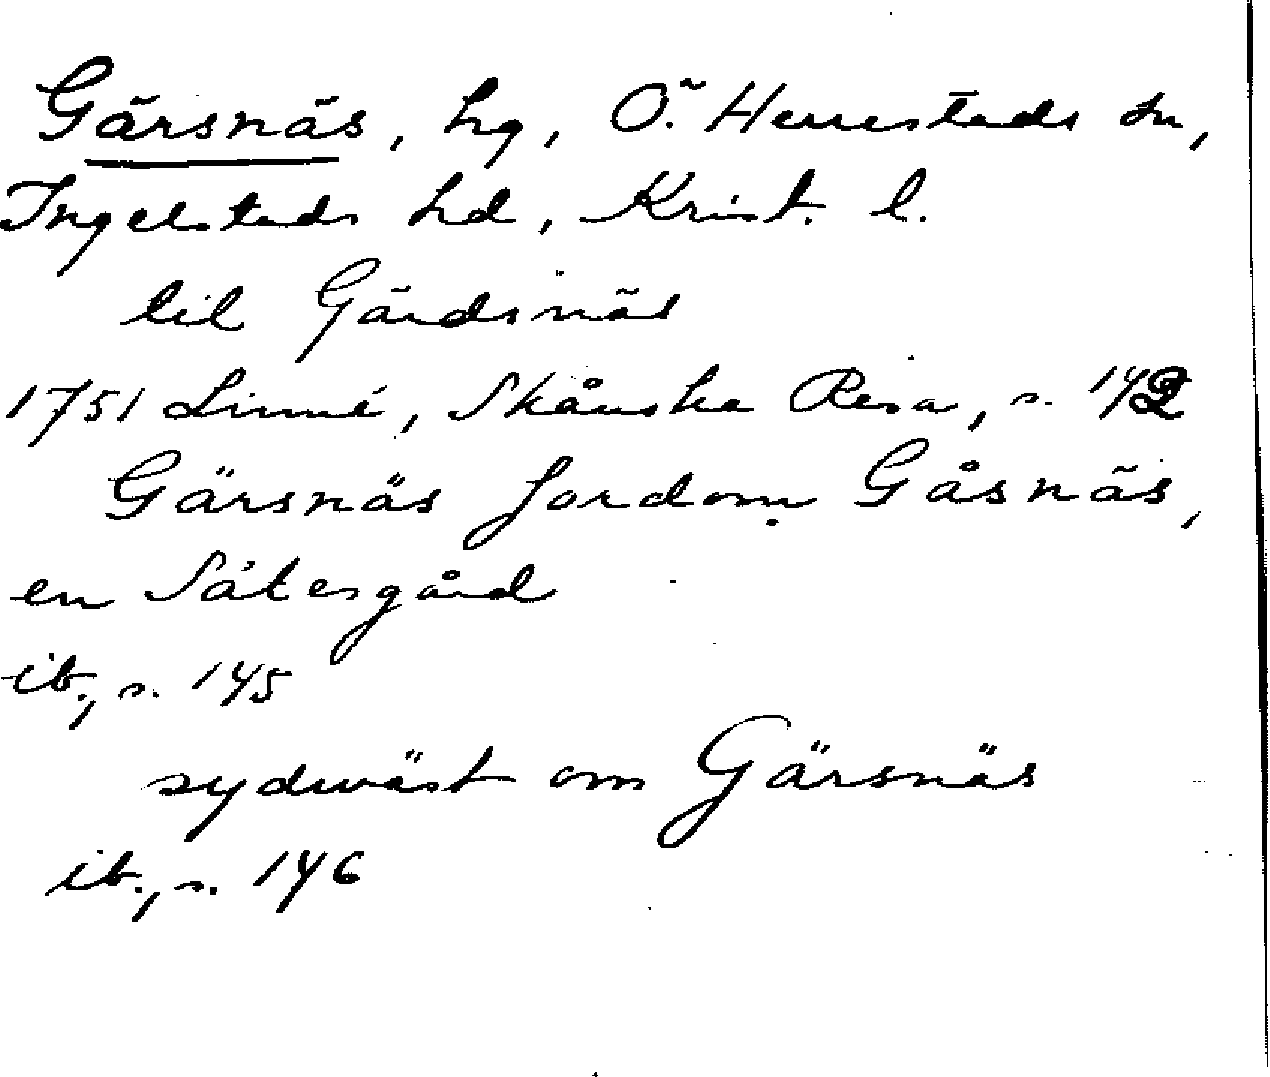 Gärsnäs, hg, Ö. Herrestads sn,
Ingelstads hd, Krist. l.
til Gärdsnäs
1751 Linné, Skånska Resa, s. 142
Gärsnäs fordom Gåsnäs,
en Sätesgård
ib., s. 145
sydwäst om Gärsnäs
ib., s. 146